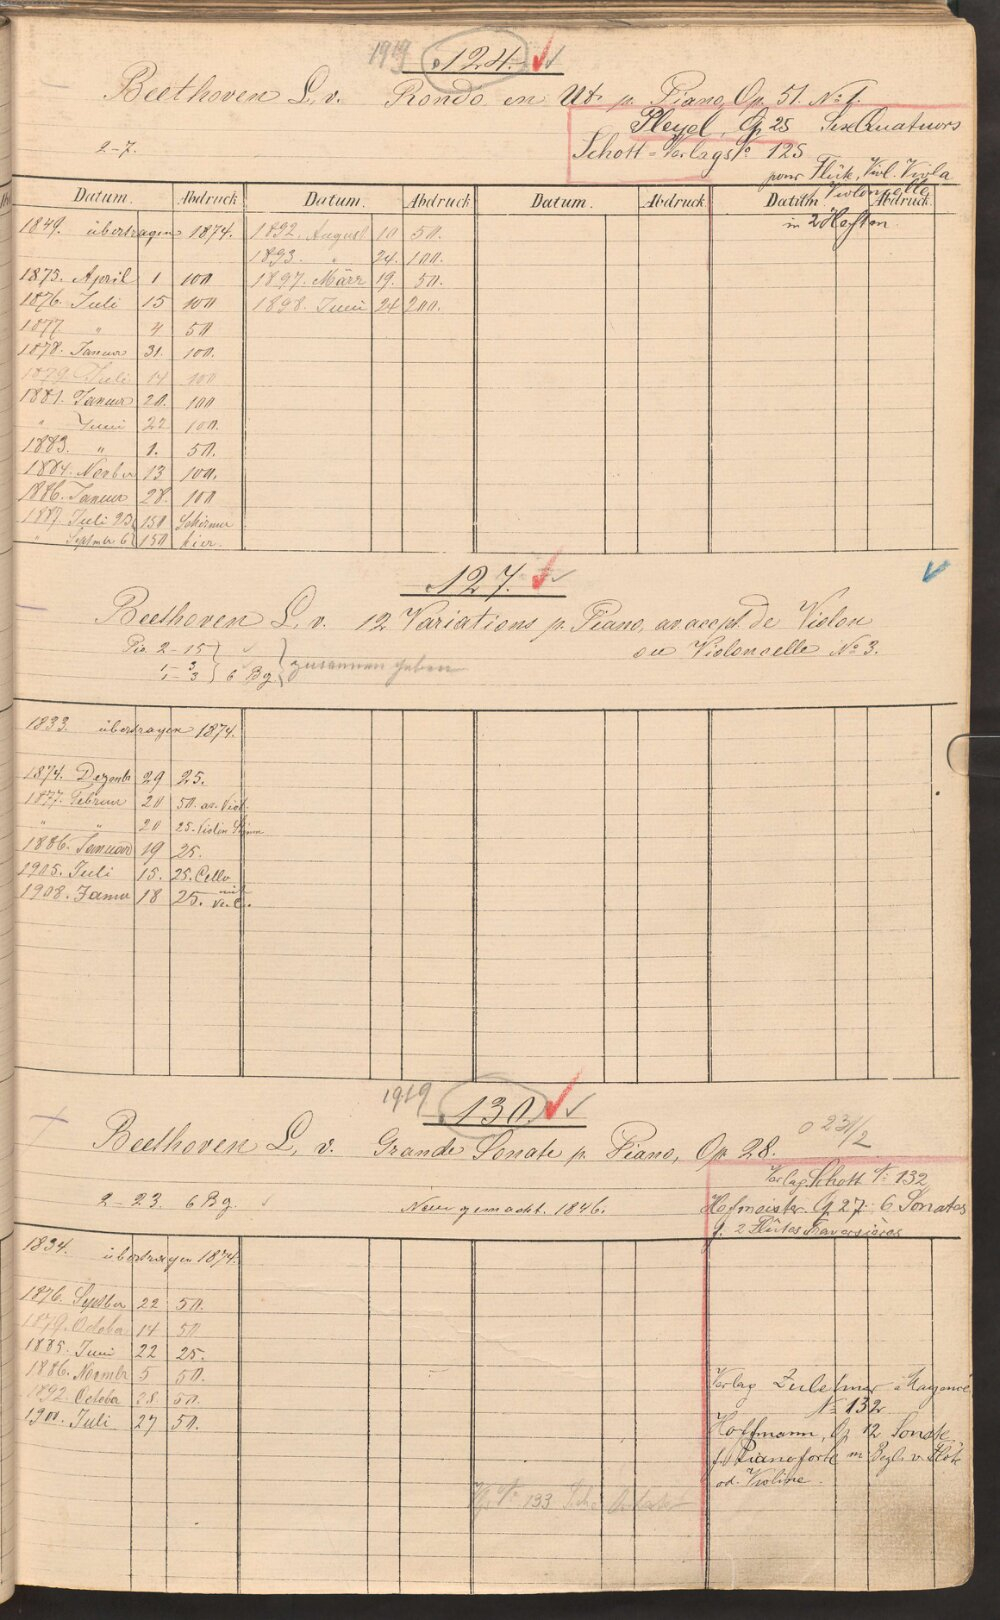 1919 124.
Beethoven L. v. Rondo en Ut p. Piano, Op. 51. No 1.
Pleyel, Op 25 Six Quatuors
2-7.
Schott-Verlags No 125
pour Flûte, Viol. Viola
Violoncelle
in 2 Heften
Datum. Abdruck Datum. Abdruck Datum. Abdruck Datum. Abdruck.
1849. übertragen 1874. 1892. August 10 50.
1893. " 24. 100.
1875. April 1 100 1897. März 19. 50.
1876. Juli 15 100 1898. Juni 24 200.
1877. " 4 50
1878. Januar 31. 100.
1879. Juli 14 100
1881. Januar 20. 100
" Juni 22 100.
1883. " 1. 50.
1884. Novber 13 100.
1886. Januar 28. 100
1887. Juli 23 150 Schirmer
" Septmbr 6 150 hier.
127.
Beethoven L. v. 12 Variations p. Piano, av accpt. de Violon
ou Violoncelle No 3.
Pia. 2-15
1-3
1-3 6 Bg. zusammen geben
1833. übertragen 1874.
1874. Dezmbr 29 25.
1877. Februar 20 50. av. Viol.
" " 20 25. Violin Stimm
1886. Januar 19 25.
1905. Juli 15. 25. Cello
1908. Januar 18 25. mit
1919 130.
0 23/2
Beethoven L. v. Grande Sonate p. Piano, Op. 28.
Verlag Schott No 132
2-23. 6 Bg. Neu gemacht. 1846.
Hofmeister. Op 27: 6 Sonates
f. 2 Flûtes Traversières
1834. übertragen 1874.
1876. Septber 22 50.
1879. October 14 50
1885. Juni 22 25.
1886. Novmbr 5 50.
1892. October 28. 50.
1900. Juli 27 50.
Verlag Zulehner a Mayence
No 132
Hoffmann, Op 12 Sonate
f. d Pianoforte m. Begl. v. Flöte
od. Violine.
No 133